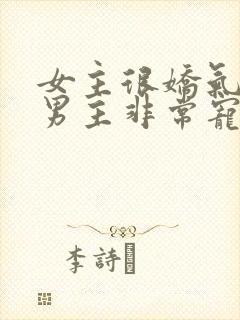 女主很嬌氣
男主非常寵
李詩